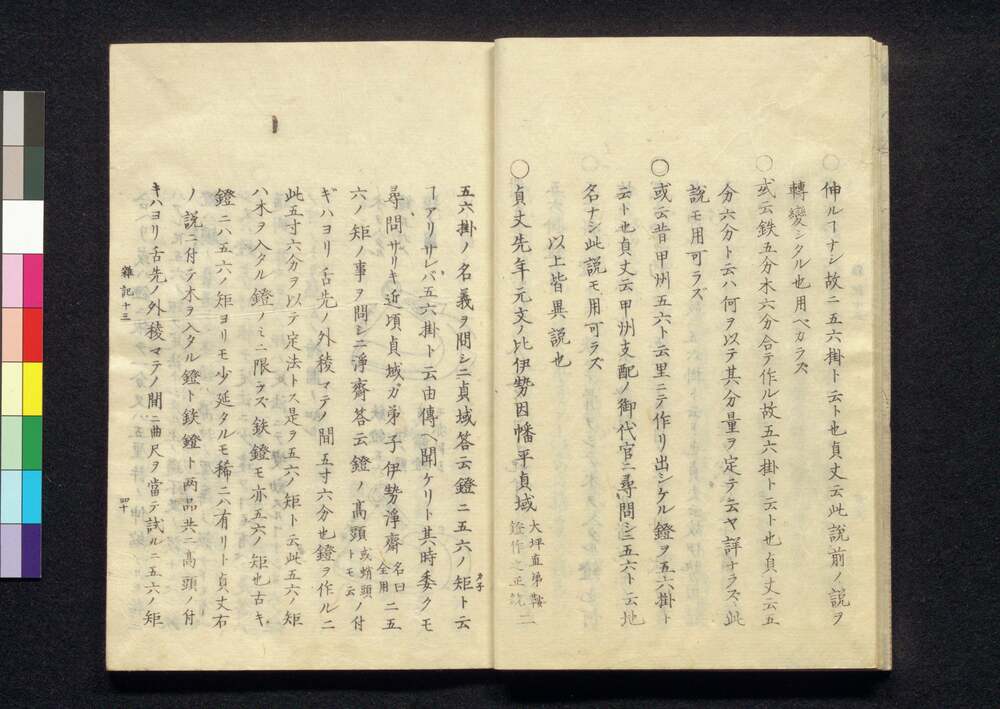 伸ルヿナシ故ニ五六掛ト云ト也貞丈云此説前ノ説ヲ
轉變シタル也用ベカラズ
○或云鉄五分木六分合テ作ル故五六掛ト云ト也貞丈云五
分六分ト云ハ何ヲ以テ其分量ヲ定テ云ヤ詳ナラズ此
説モ用可ラズ
○或云昔甲州五六ト云里ニテ作リ出シケル鐙ヲ五六掛ト
云ト也貞丈云甲州支配ノ御代官ニ尋問シニ五六ト云地
名ナシ此説モ用可ラズ
以上皆異説也
○貞丈先年元文ノ比伊勢因幡平貞域大坪直弟鞍
鐙作之正統ニ
五六掛ノ名義ヲ問シニ貞域答云鐙ニ五六ノ矩カ子ト云
ヿアリサレバ五六掛ト云由傳ヘ聞ケリト其時委クモ
尋問サリキ近頃貞域ガ弟子伊勢淨齋名曰
全用ニ五
六ノ矩ノ事ヲ問シニ淨齋答云鐙ノ高頭或蛸頭
トモ云ノ付
ギハヨリ舌先ノ外稜マテノ間五寸六分也鐙ヲ作ルニ
此五寸六分ヲ以テ定法トス是ヲ五六ノ矩ト云此五六ノ矩
ハ木ヲ入タル鐙ノミニ限ラズ鉄鐙モ亦五六ノ矩也古キ
鐙ニハ五六ノ矩ヨリモ少延タルモ稀ニハ有リト貞丈右
ノ説ニ付テ木ヲ入タル鐙ト鉄鐙ト両品共ニ高頭ノ付
キハヨリ舌先ノ外稜マテノ間ニ曲尺ヲ當テ試ルニ五六ノ矩
雜記十三
四十